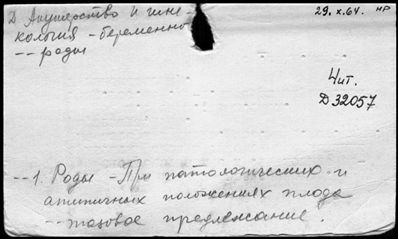 Д Акушерство и гине-
кология - беременно
-- роды
29.x.64. нр
Чит.
Д 32057
--1. Роды - При патологических и
атипичных положениях плода
-- тазовое предлежание.